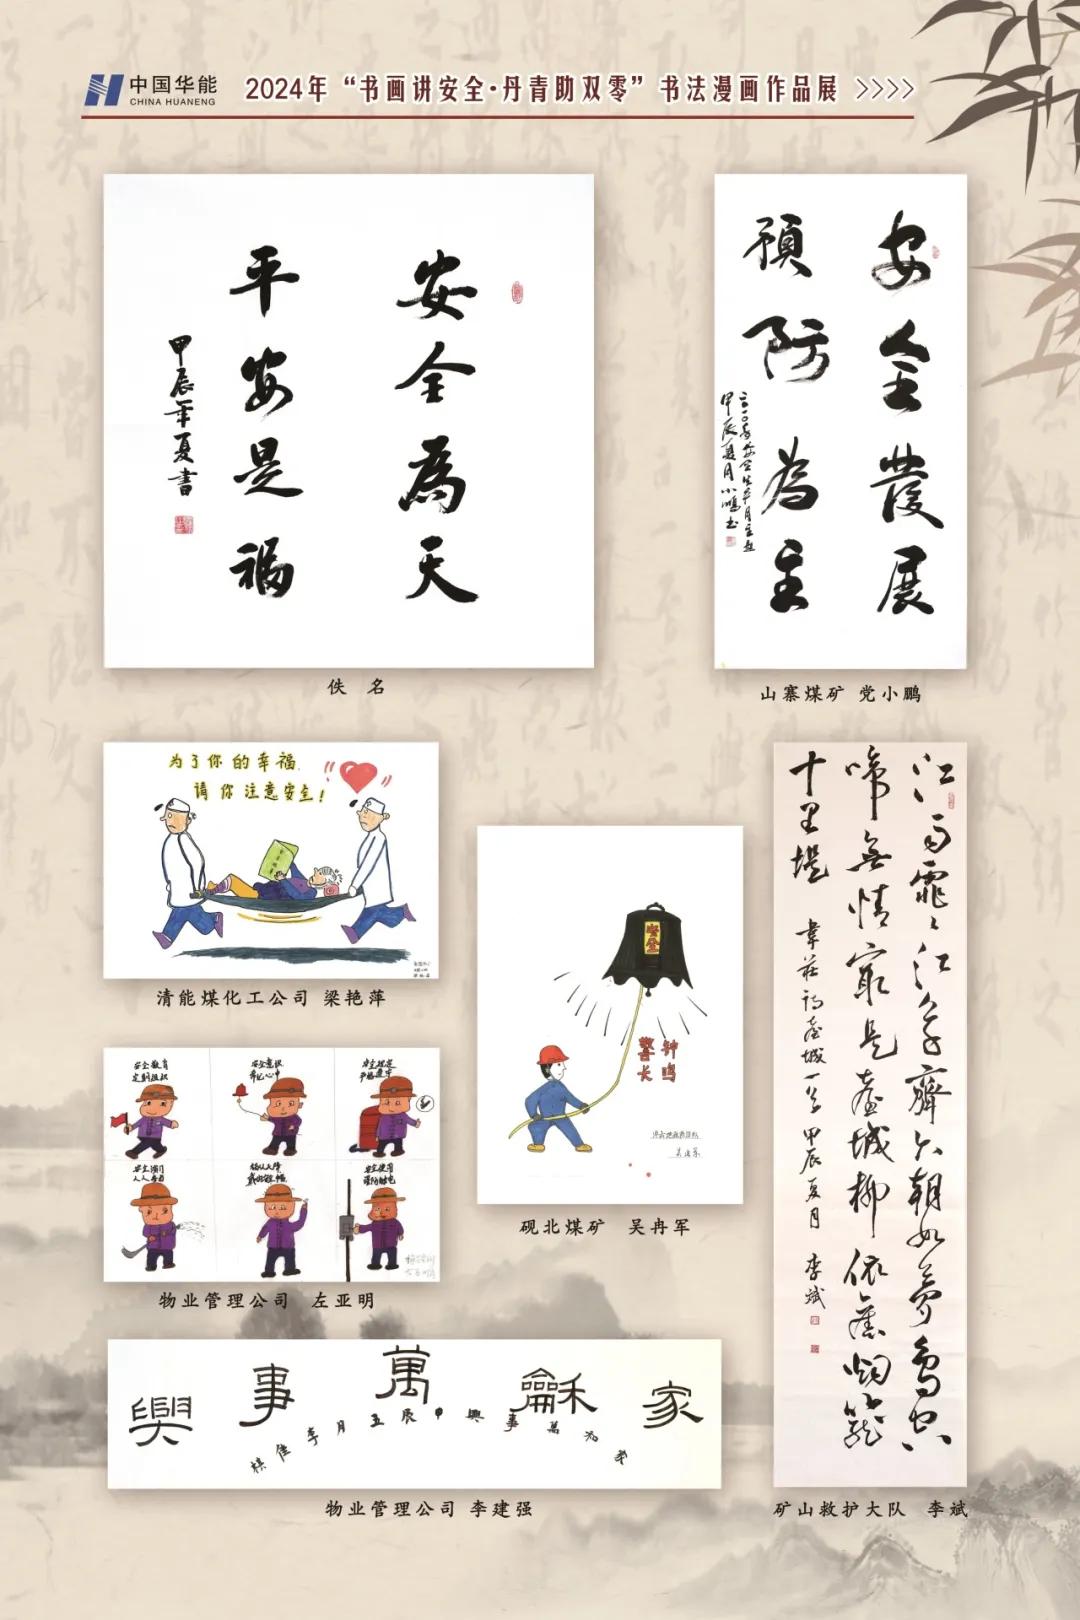 中国华能
CHINA HUANENG
2024年“书画讲安全·丹青助双零”书法漫画作品展 >>>>
安全為天
平安是福
甲辰年夏書
佚 名
安全發展
預防為主
甲辰夏月小鹏书
山寨煤矿 党小鹏
为了你的幸福,
请你注意安全!
清能煤化工公司 梁艳萍
安全
警钟
长鸣
砚北煤矿 吴冉军
安全教育
定期组织
安全意识
牢记心中
物业管理公司 左亚明
家龢萬事興
家和萬事興 甲辰五月李建强
物业管理公司 李建强
江雨霏霏江草齊六朝如夢鳥空
啼無情最是臺城柳依舊烟籠
十里堤
韋莊詩臺城一首 甲辰夏月 李斌
矿山救护大队 李斌